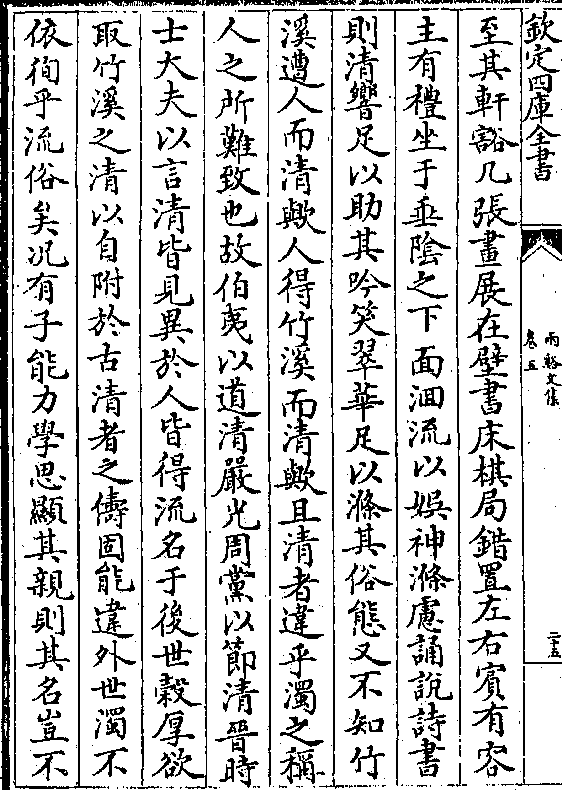 欽定四庫全書
兩谿文集
卷五
二十五
至其軒豁几張畫展在壁書床棋局錯置左右賓有容
主有禮坐于垂陰之下面洄流以娯神滌慮誦說詩書
則清響足以助其吟笑翠華足以滌其俗態又不知竹
溪遭人而清歟人得竹溪而清歟且清者違乎濁之稱
人之所難致也故伯夷以道清嚴光周黨以節清晉時
士大夫以言清皆見異於人皆得流名于後世穀厚欲
取竹溪之清以自附於古清者之儔固能違外世濁不
依徇乎流俗矣况有子能力學思顯其親則其名豈不